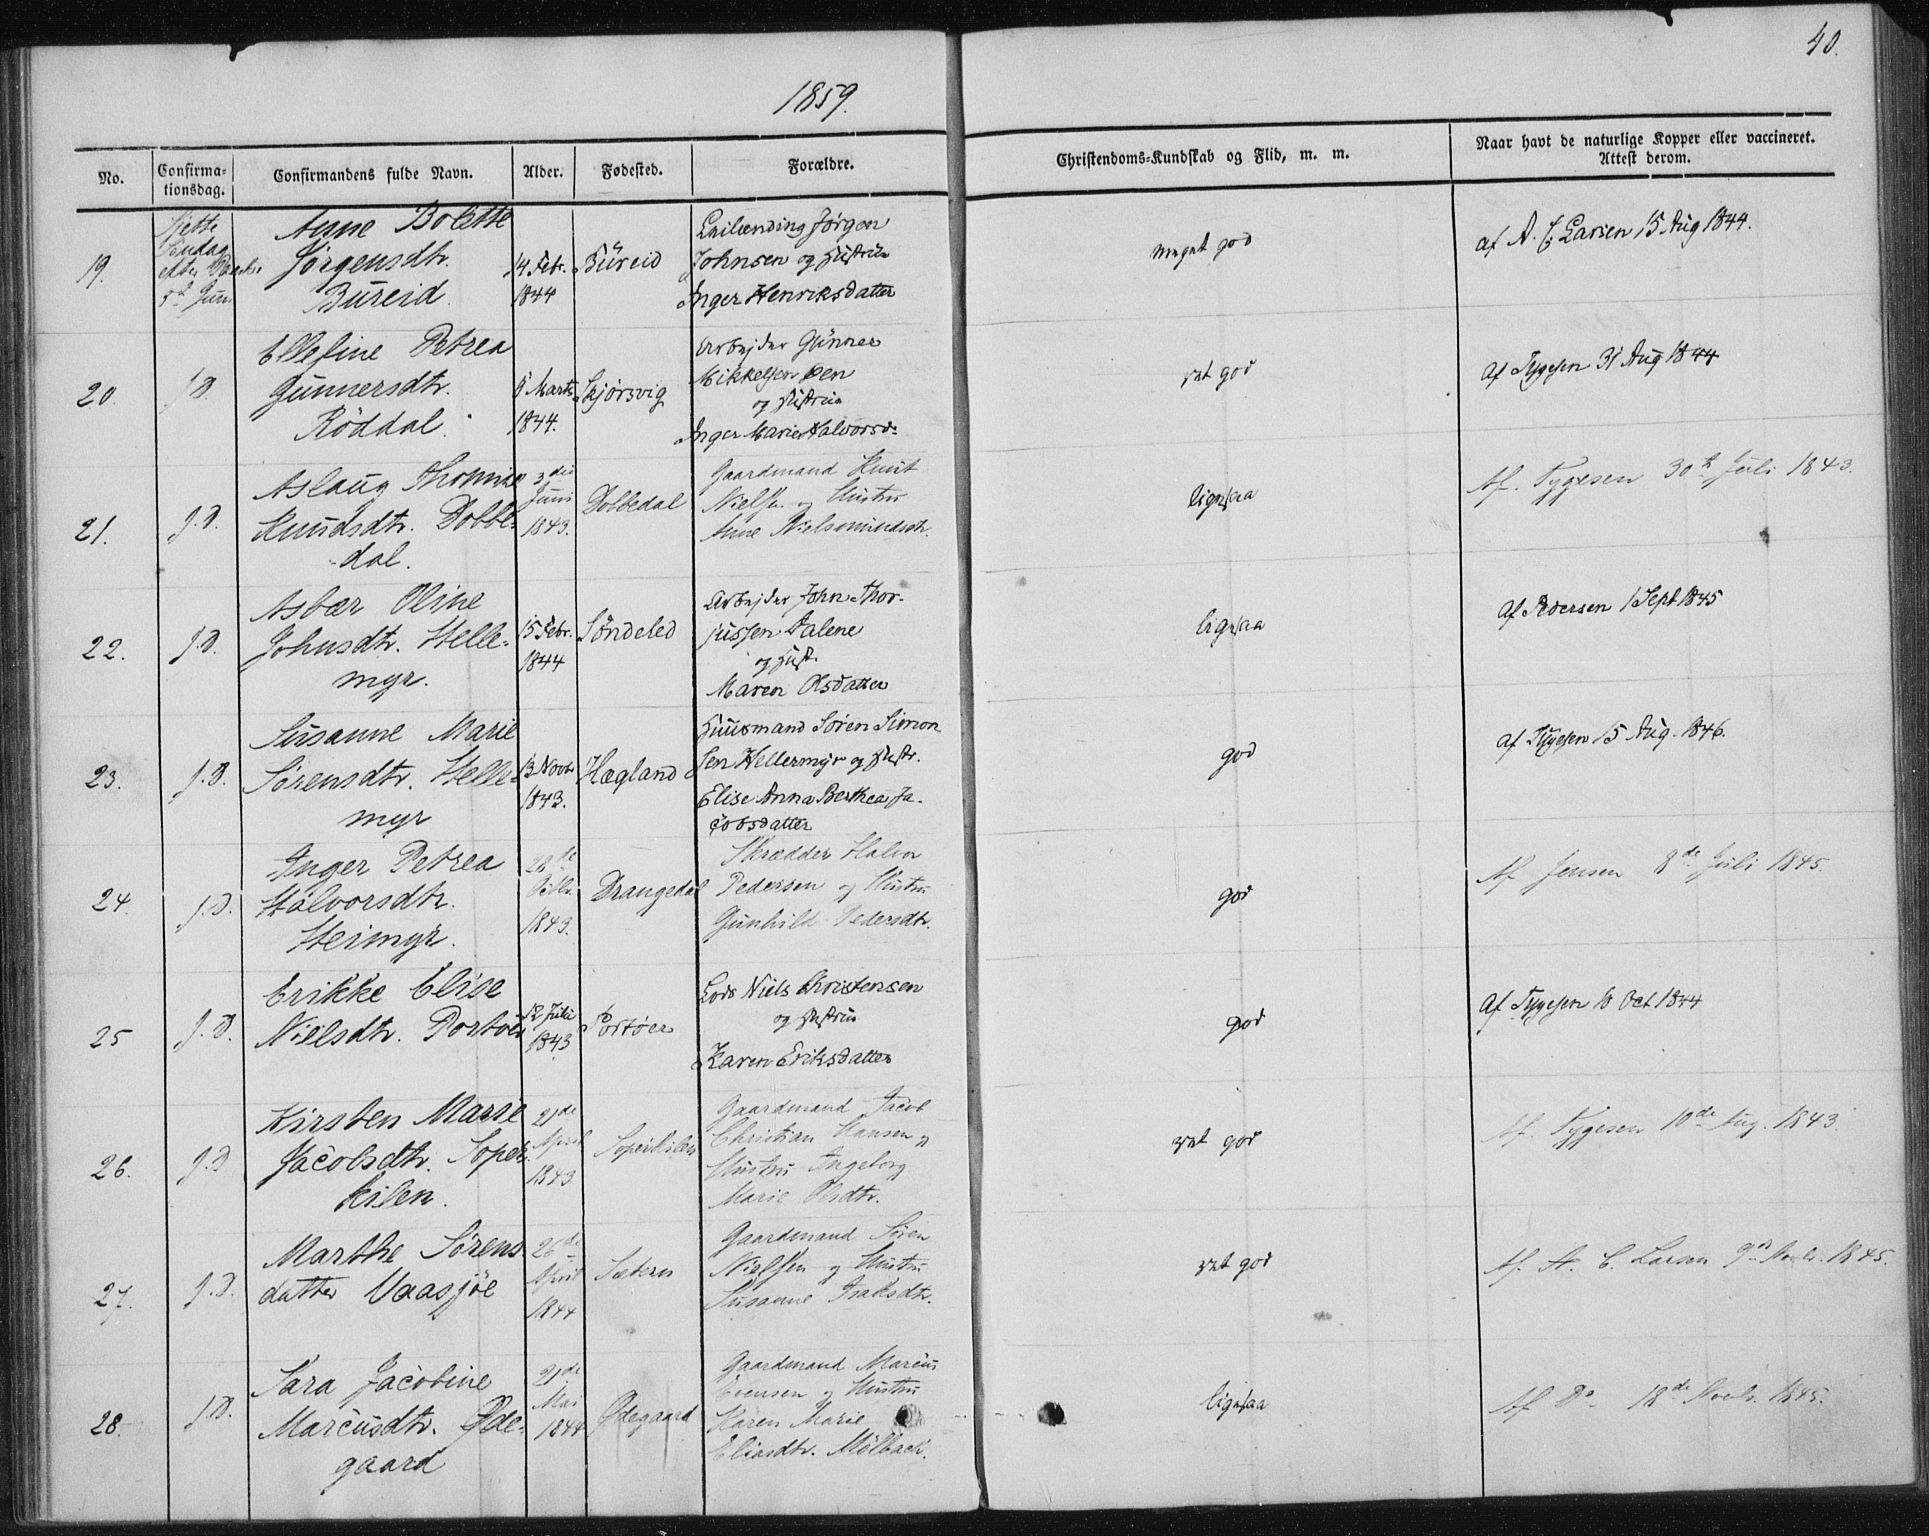 40.
1859.
No.
Confirma-
tionsdag.
Confirmandens fulde Navn.
Alder.
Fødested.
Forældre.
Christendoms-Kundskab og Flid, m. m.
Naar havt de naturlige Kopper eller vaccineret.
Attest derom.
19.
Sjette
Søndag
efter Paaske
5te Juni
Anne Bolette
Jörgensdtr.
Bureid.
14 Febr.
1844
Bureid
Leilending Jørgen
Johnsen og Hustrue
Inger Henriksdatter
meget god
af A. C. Larsen 15 Aug 1844.
20.
J.D.
Ellefine Petrea
Gunnersdtr.
Röddal.
Marts
1844.
Skjörsvig
Arbejder Gunner
Mikkelsen
og Hustrue
Inger Marie Halvorsd.
ret god
af Tygesen 31 Aug 1844
21.
J.D.
Aslaug Thomine
Knudsdtr. Dobbe-
dal.
3die
Juni
1843.
Dobbedal
Gaardmand Knut
Nielsen og Hustru
Anne
ligesaa
Af. Tygesen 30te Juli 1843.
22.
J.D.
Asbær Oline
Johnsdtr. Helle-
myr.
15 Febr.
1844
Söndeled
Arbejder John Thor-
jussen Dalene
og Hust.
Maren Olsdatter
ligesaa
af Pedersen 1 Sept 1845
23.
J.D.
Susanne Marie
Sörensdtr. Helle-
myr
13 Novbr
1843.
Hægland
Huusmand Søren Simon
sen Hellermyr og Hustr.
Elise Anna Berthea Ja-
cobsdatter
god
af Tygesen 15 Aug. 1846.
24.
J.D.
Inger Petrea
Halvorsdtr.
Heimyr.
28de
1843.
Drangedal
Skrædder Halvor
Pedersen og Hustru
Gunhild Pedersdtr.
god
Af Jensen 8de Juli 1845.
25
J.D.
Erikke Elise
Nielsdtr. Portöer
12 Juli
1843
Portöer
Lods Niels Christensen
og Hustrue
Karen Eriksdatter
god
Af Tygesen 10 Oct 1844
26.
J.D
Kirsten Marie
Jacobsdtr. Soper-
kilen.
21de
April
1843
Soperkilen
Gaardmand Jacob
Christian Hansen og
Hustru Ingeborg
Marie Olsdtr.
ret god
Af. Tygesen 10de Aug. 1843.
27.
J.D.
Marthe Sörens
datter Vaasjöe
26de
April
1844
Sætern
Gaardmand Sören
Nielsen og Hustru
Susanne Isaksdtr.
ret god
Af. A. C. Larsen 9de Novbr. 1845.
28.
J.D.
Sara Jacobine
Marcusdtr. Øde-
gaard
21de
Mai
1844
Ødegaard
Gaardmand Marcus
Evensen og Hustru
Karen Marie
Eliasdtr. Mölback.
ligesaa
Af Do 18de Novbr. 1845.